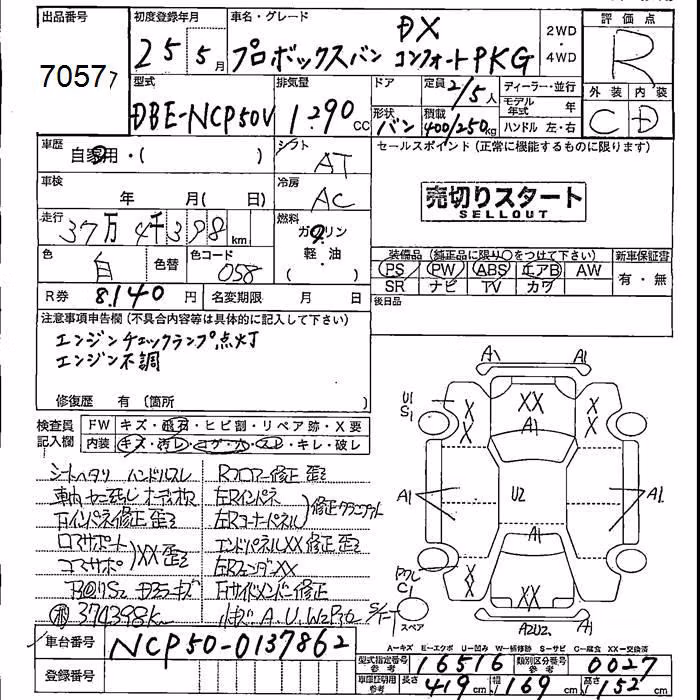 出品番号
70577
初度登録年月
25 5月
車名・グレード
DX
プロボックスバン コンフォートPKG
2WD
・
4WD
評価点
R
外装 内装
C D
型式
DBE-NCP50V
排気量
1.290 cc
ドア
形状
バン
定員 2/5人
積載 400/250kg
ディーラー・並行
モデル年式 年
ハンドル 左・右
車歴
自家用・( )
シフト
AT
セールスポイント (正常に機能するものに限ります)
売切りスタート
SELLOUT
車検
年 月( 日)
冷房
AC
走行
37万4千398km
燃料
ガソリン
軽・油
・( )
色
白
色替
色コード
058
装備品 (純正品に限り○をつけて下さい)
新車保証書
PS PW ABS エアB AW
SR ナビ TV カワ
有・無
R券 8.140円
名変期限 月 日
後日品
注意事項申告欄 (不具合内容等は具体的に記入して下さい)
エンジンチェックランプ点灯
エンジン不調
修復歴 有 (箇所 )
検査員記入欄
FW キズ・飛石・ヒビ割・リペア跡・X要
内装 キズ・汚レ・コゲ・穴・スレ・キレ・破レ
シートヘタリ ハンドルスレ
Rフロアー修正 歪
左Rインパネ
右インパネ修正 歪
左Rコーナーパネル
コアサポート
XX 歪
エンドパネルXX 修正 歪
左RフェンダーXX
右サイドメンバー修正
374398km
A.U.W2
A1 A1
U1
S1
XX
X
X
X
X
A1
A1
U2
A1
A1
C1
X
XX
X
A2U2
A1
スペア
車台番号
NCP50-0137862
登録番号
A-キズ E-エクボ U-凹み W-補修跡 S-サビ C-腐食 XX-交換済
型式指定番号 参考 16516
類別区分番号 参考 0027
車庫証明用 参考 長さ 419cm 幅 169cm 高さ 152cm